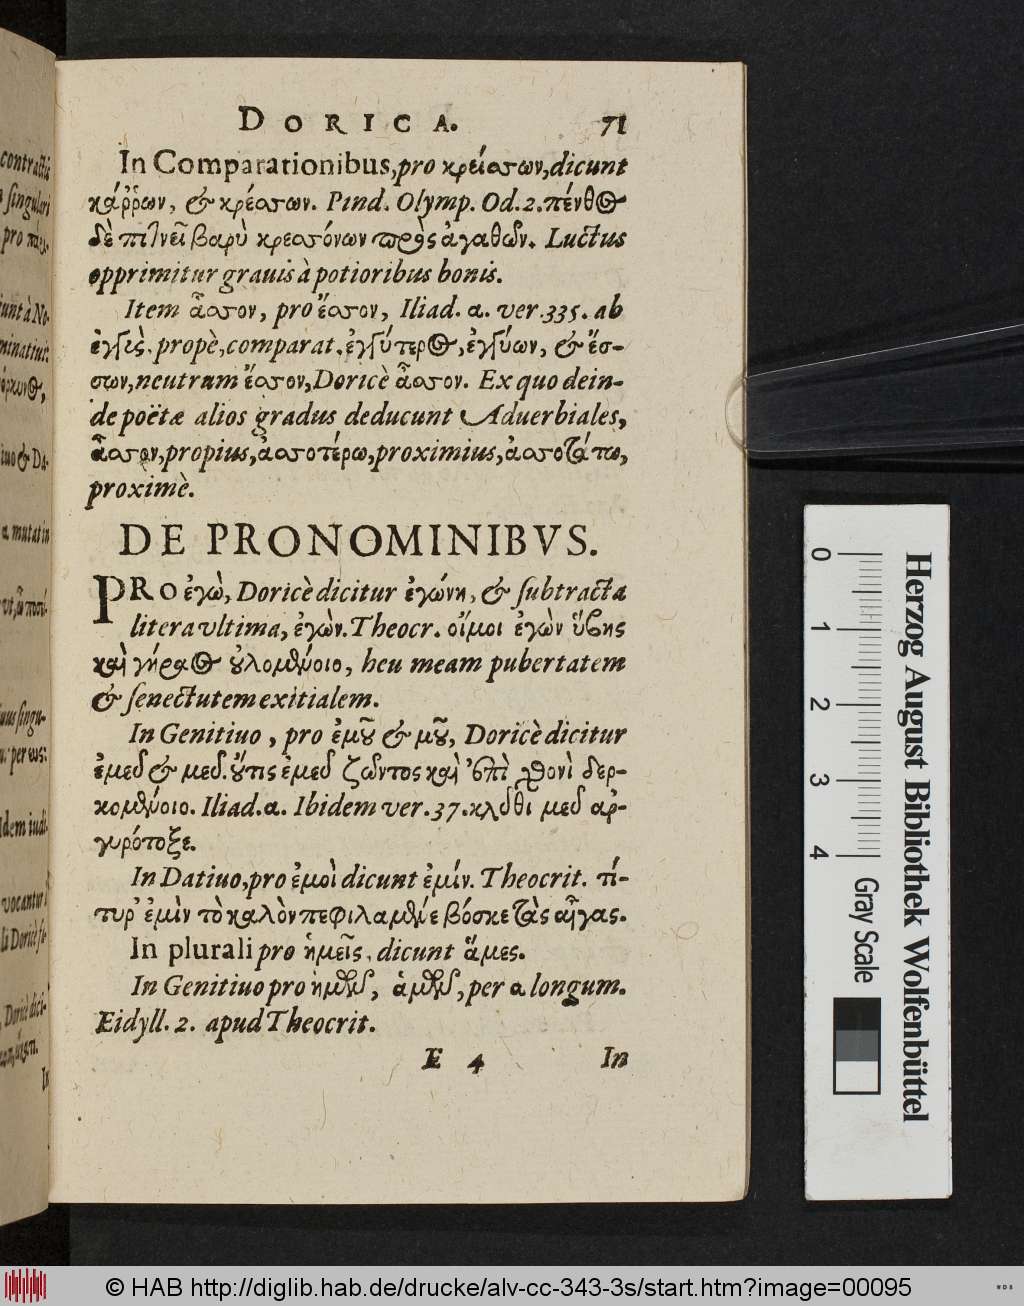 DORICA. 71
In Comparationibus, pro κρείσσων, dicunt
κάῤῥων, & κρέσσων. Pind. Olymp. Od. 2. πένθος
δὲ πιτνεῖ βαρὺ κρεσσόνων πρὸς ἀγαθῶν. Luctus
opprimitur grauis à potioribus bonis.
Item ἆσσον, pro ἔασσον, Iliad. α. ver. 335. ab
ἐγγὺς. propè, comparat. ἐγγύτερος, ἐγγύων, & ἔσ-
σων, neutrum ἔασσον, Doricè ἆσσον. Ex quo dein-
de poëtæ alios gradus deducunt Aduerbiales,
ἆσσον, propius, ἀσσοτέρω, proximius, ἀσσοτάτω,
proximè.
DE PRONOMINIBVS.
PRO ἐγὼ, Doricè dicitur ἐγώνη, & subtracta
litera vltima, ἐγὼν. Theocr. οἴμοι ἐγὼν ὕβης
καὶ γήραος οὐλομένοιο, heu meam pubertatem
& senectutem exitialem.
In Genitiuo, pro ἐμοῦ & μοῦ, Doricè dicitur
ἐμεῦ & μεῦ. οὔτις ἐμεῦ ζῶντος καὶ ἐπὶ χθονὶ δερ-
κομένοιο. Iliad. α. Ibidem ver. 37. κλῦθι μεῦ ἀρ-
γυρότοξε.
In Datiuo, pro ἐμοὶ dicunt ἐμίν. Theocrit. τί-
τυρ' ἐμὶν τὸ καλὸν πεφιλαμένε βόσκε τὰς αἶγας.
In plurali pro ἡμεῖς, dicunt ἅμες.
In Genitiuo pro ἡμῶν, ἁμῶν, per α longum.
Eidyll. 2. apud Theocrit.
E 4 In
Herzog August Bibliothek Wolfenbüttel
0 1 2 3 4 Gray Scale
© HAB http://diglib.hab.de/drucke/alv-cc-343-3s/start.htm?image=00095